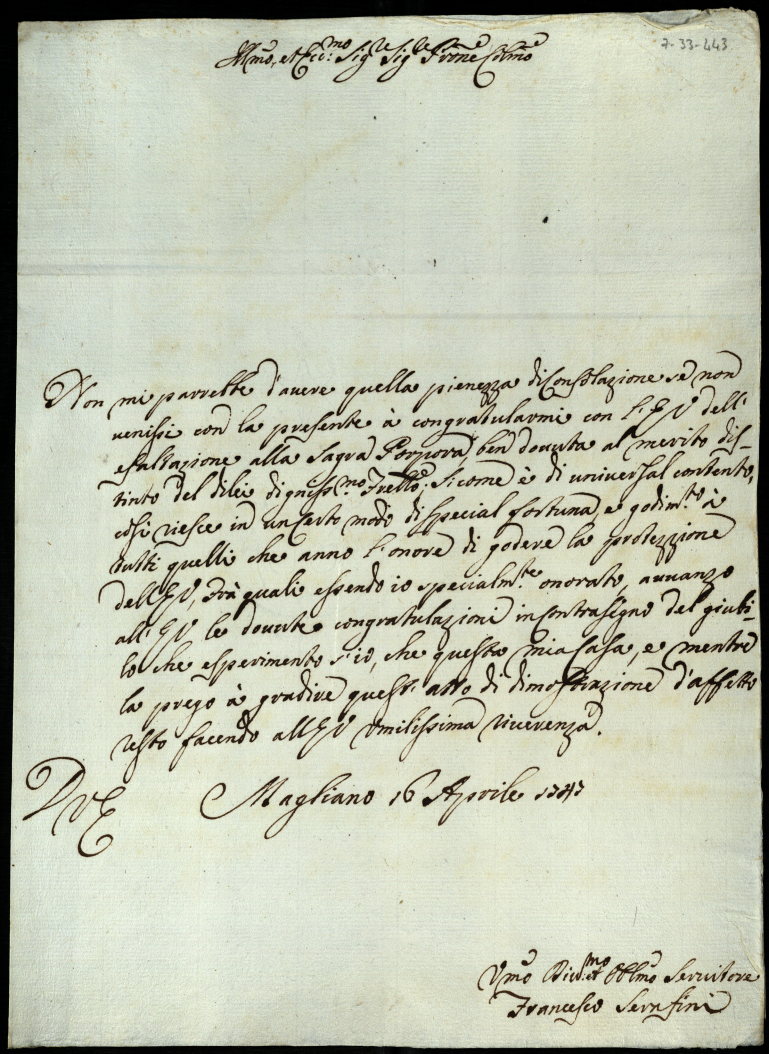 7-33-443
Ill:mo, et Ecc:mo Sig:re Sig:re Prõne Col:mo
Non mi parrebbe d'avere quella pienezza di Consolazione se non
venissi con la presente à congratularmi con l'EV dell'
esaltazione alla Sagra Porpora, ben dovuta al merito dis-
tinto del dilei digniss:mo Frello; Sicome è di universal contento,
così riesce in un certo modo di special fortuna, e godim:to à
tutti quelli che anno l'onore di godere la protezzione
dell'EV, Frà quali essendo io specialm:te onorato, avvanzo
all'EV le dovute congratulazioni in contrasegno del giubi-
lo che esperimento s'io, che questa mia Casa, e mentre
la prego à gradire quest'atto di dimostrazione d'affetto
resto facendo all'EV umilissima riverenza.
DVE Magliano 16 Aprile 1747
Vmo Div:mo et Obl:mo Servitore
Francesco Serafini